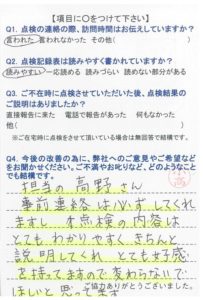 【項目に〇をつけて下さい】
Q1. 点検の連絡の際、訪問時間はお伝えしていますか?
言われた 言われなかった その他( )
Q2. 点検記録表は読みやすく書かれていますか?
読みやすい 一応読める 読みづらい 読めない部分がある
Q3. ご不在時に点検させていただいた後、点検結果の
ご説明はありましたか?
直接報告に来た 電話で報告があった 何もなかった
他( )
※ご在宅時に点検をさせて頂いている場合は無回答で結構です。
Q4. 今後の改善の為に、弊社へのご意見やご希望など
をお聞かせください。ご不満やお叱りなど、どのようなこと
でも結構です。
担当の高野さん
事前連絡は必ずしてくれ
ますし、本点検の内容は
とてもわかりやすくきちんと
説明してくれ、とても好感
を持てますので変わらないで
ほしいと思って居ます
ご協力ありがとうございました。